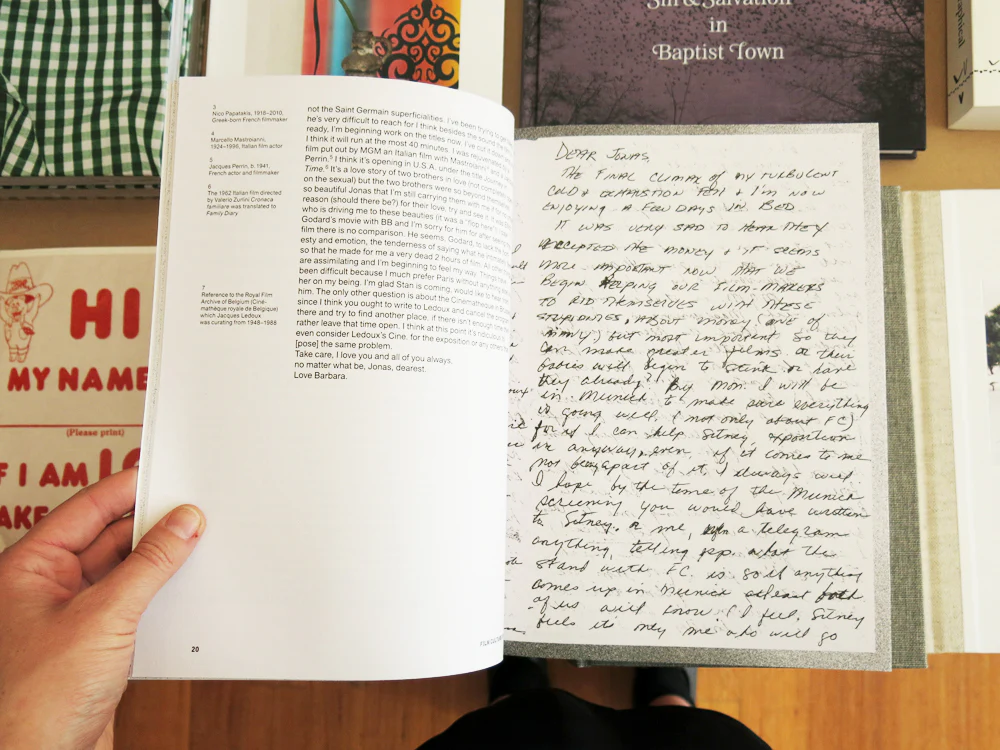 Sin & Salvation
in
Baptist Town
3
Nico Papatakis, 1918–2010,
Greek-born French filmmaker
4
Marcello Mastroianni,
1924–1996, Italian film actor
5
Jacques Perrin, b. 1941,
French actor and filmmaker
6
The 1962 Italian film directed
by Valerio Zurlini Cronaca
familiare was translated to
Family Diary.
7
Reference to the Royal Film
Archive of Belgium (Ciné-
mathèque royale de Belgique)
which Jacques Ledoux
was curating from 1948–1988
not the Saint Germain superficialities. I've been trying to
he's very difficult to reach for I think besides the sound
ready, I'm beginning work on the titles now. I've cut it down
I think it will run at the most 40 minutes. I was
film put out by MGM an Italian film with Mastroianni
Perrin.5 I think it's opening in U.S.A. under the title
Time.6 It's a love story of two brothers in love (not
on the sexual) but the two brothers were so
so beautiful Jonas that I'm still carrying them with me
reason (should there be?) for their love, try and see it
who is driving me to these beauties (it was a "flop here")
Godard's movie with BB and I'm sorry for him for after
film there is no comparison. He seems, Godard, to lack
esty and emotion, the tenderness of saying what he
so that he made for me a very dead 2 hours of film.
are assimilating and I'm beginning to feel my way. Things
been difficult because I much prefer Paris without any
her on my being. I'm glad Stan is coming, would like to
him. The only other question is about the Cinematheque
since I think you ought to write to Ledoux and cancel the
there and try to find another place, if there isn't enough time
rather leave that time open. I think at this point it's
even consider Ledoux's Cine. for the exposition or any other
[pose] the same problem.
Take care, I love you and all of you always,
no matter what be, Jonas, dearest.
Love Barbara.
20
FILM CULTURE
DEAR JONAS,
THE FINAL CLIMAX OF MY TURBULENT
COLD & EXHAUSTION FELL & I'M NOW
ENJOYING A FEW DAYS IN BED.
IT WAS VERY SAD TO HEAR THEY
ACCEPTED THE MONEY & IT SEEMS
MORE IMPORTANT NOW THAT WE
BEGIN HELPING OUR FILM-MAKERS
TO RID THEMSELVES WITH THESE
STUPIDITIES, ABOUT MONEY (ONE OF
MANY) but most important so they
can make greater films or their
babies will begin to stink or have
they already?! By mon. I will be
in Munich to make sure everything
is going well, (not only about FC)
for if I can help Sitney, exposition
in anyway, even if it comes to me
not being apart of it, I always will
I hope by the time of the Munich
screening you would have written
to Sitney, or me, a telegram
anything, telling pp. what the
stand with FC. is so if anything
comes up in Munich at least both
of us will know. (I feel, Sitney
feels its only me who will go
HI
MY NAME
(Please print)
IF I AM LO
AKE